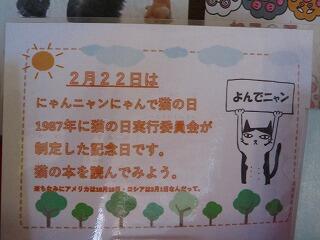 2月22日は
にゃんニャンにゃんで猫の日
1987年に猫の日実行委員会が
制定した記念日です。
猫の本を読んでみよう。
ちなみにアメリカは10月29日・ロシアは3月1日なんだって。
よんでニャン